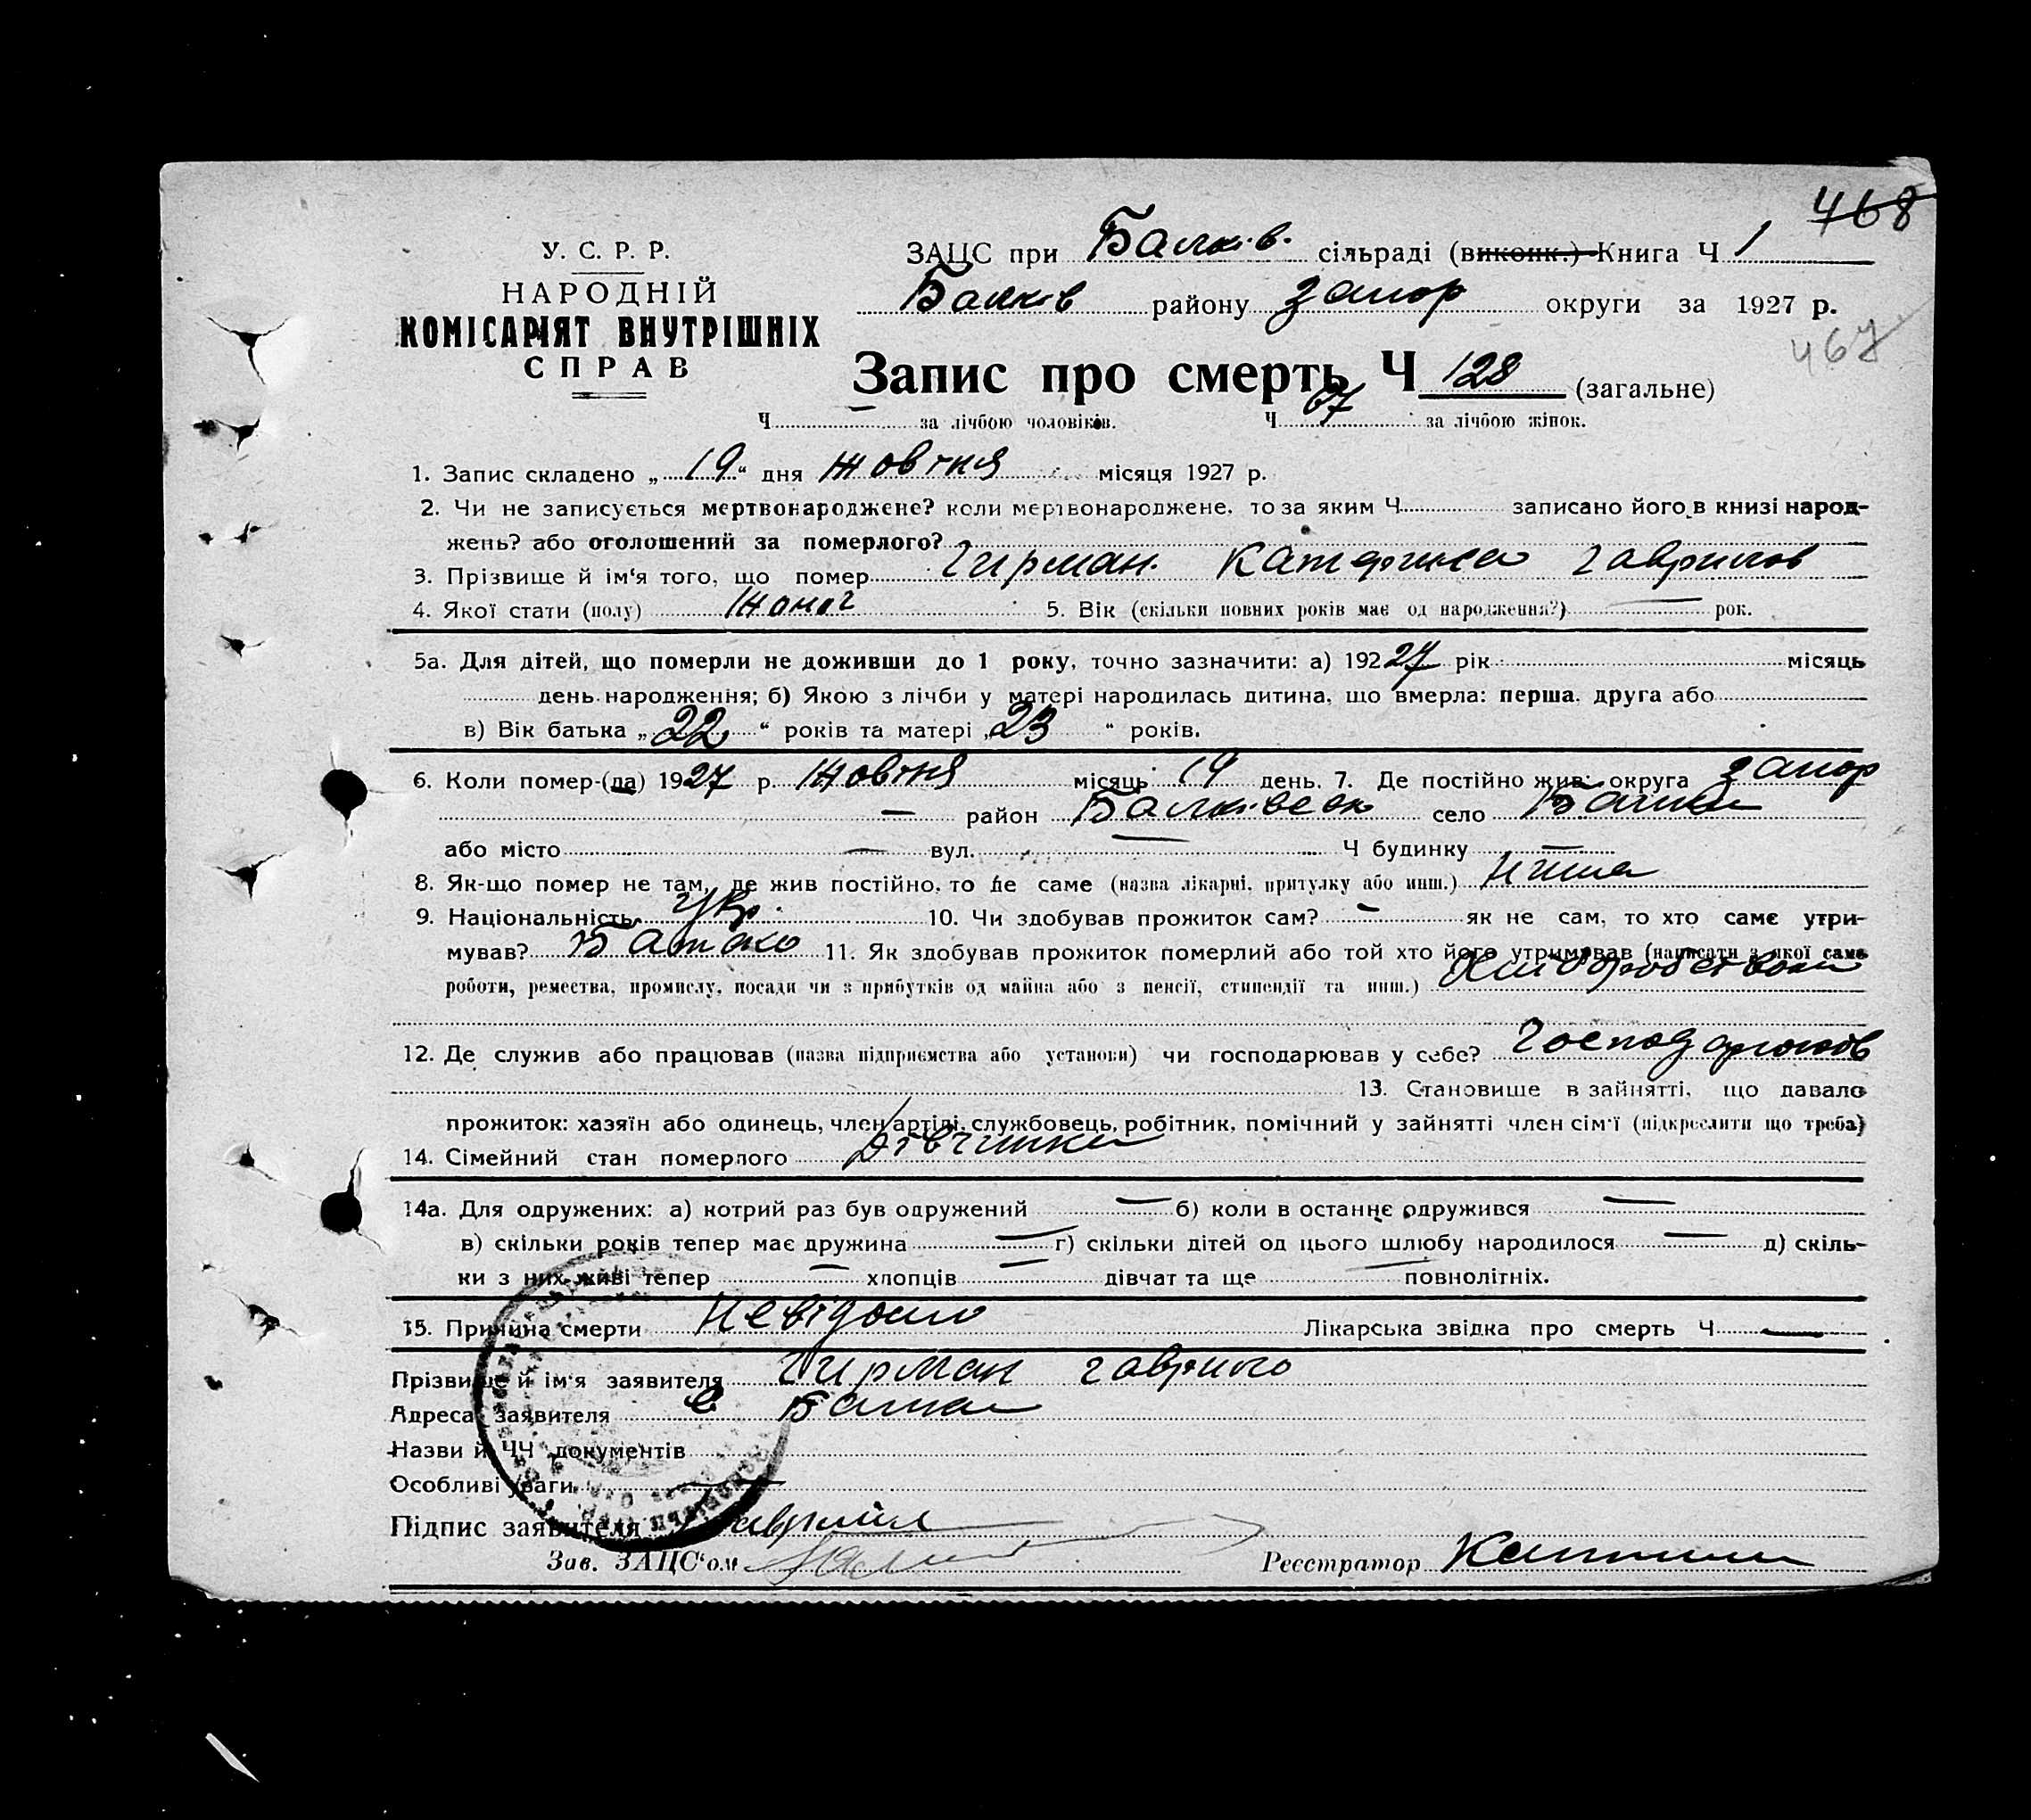 468
У. С. Р. Р.
ЗАЦС при Балків. сільраді (виконк.) Книга Ч 1
НАРОДНІЙ
Балків району Запор округи за 1927 р.
КОМІСАРІЯТ ВНУТРІШНІХ
СПРАВ
467
Запис про смерть Ч 128 (загальне)
Ч — за лічбою чоловіків. Ч 67 за лічбою жінок.
1. Запис складено „19“ дня Жовтня місяця 1927 р.
2. Чи не записується мертвонароджене? коли мертвонароджене, то за яким Ч записано його в книзі народ-
жень? або оголошений за померлого?
3. Прізвище й ім‘я того, що помер Гирман Катерина Гаврилов
4. Якої стати (полу) Жоноч 5. Вік (скільки повних років має од народження?) — рок.
5а. Для дітей, що померли не доживши до 1 року, точно зазначити: а) 19227 рік місяць
день народження; б) Якою з лічби у матері народилась дитина, що вмерла: перша, друга або
в) Вік батька „22“ років та матері „23“ років.
6. Коли помер-(ла) 1927 р. Жовтня місяць 19 день. 7. Де постійно жив: округа Запор
— район Балківськ село Балки
або місто — вул. — Ч будинку —
8. Як-що помер не там, де жив постійно, то де саме (назва лікарні, притулку або инш.)
9. Національність Укр. 10. Чи здобував прожиток сам? — як не сам, то хто саме утри-
мував? Батько 11. Як здобував прожиток померлий або той хто його утримував (написати з якої саме
роботи, ремества, промислу, посади чи з прибутків од майна або з пенсії, стипендії та инш.) Хліборобством
12. Де служив або працював (назва підприємства або установи) чи господарював у себе? Господарював
13. Становище в зайнятті, що давало
прожиток: хазяїн або одинець, член артілі, службовець, робітник, помічний у зайнятті член сім‘ї (підкреслити що треба)
14. Сімейний стан померлого Дівчинка
14а. Для одружених: а) котрий раз був одружений — б) коли в останнє одружився —
в) скільки років тепер має дружина — г) скільки дітей од цього шлюбу народилося — д) скіль-
ки з них живі тепер — хлопців — дівчат та ще — повнолітніх.
15. Причина смерти Невідомо Лікарська звідка про смерть Ч —
Прізвище й ім‘я заявителя Гирман Гаврило
Адреса заявителя с Балки
Назви й ЧЧ документів
Особливі уваги —
Підпис заявителя
Зав. ЗАЦС‘ом Реєстратор